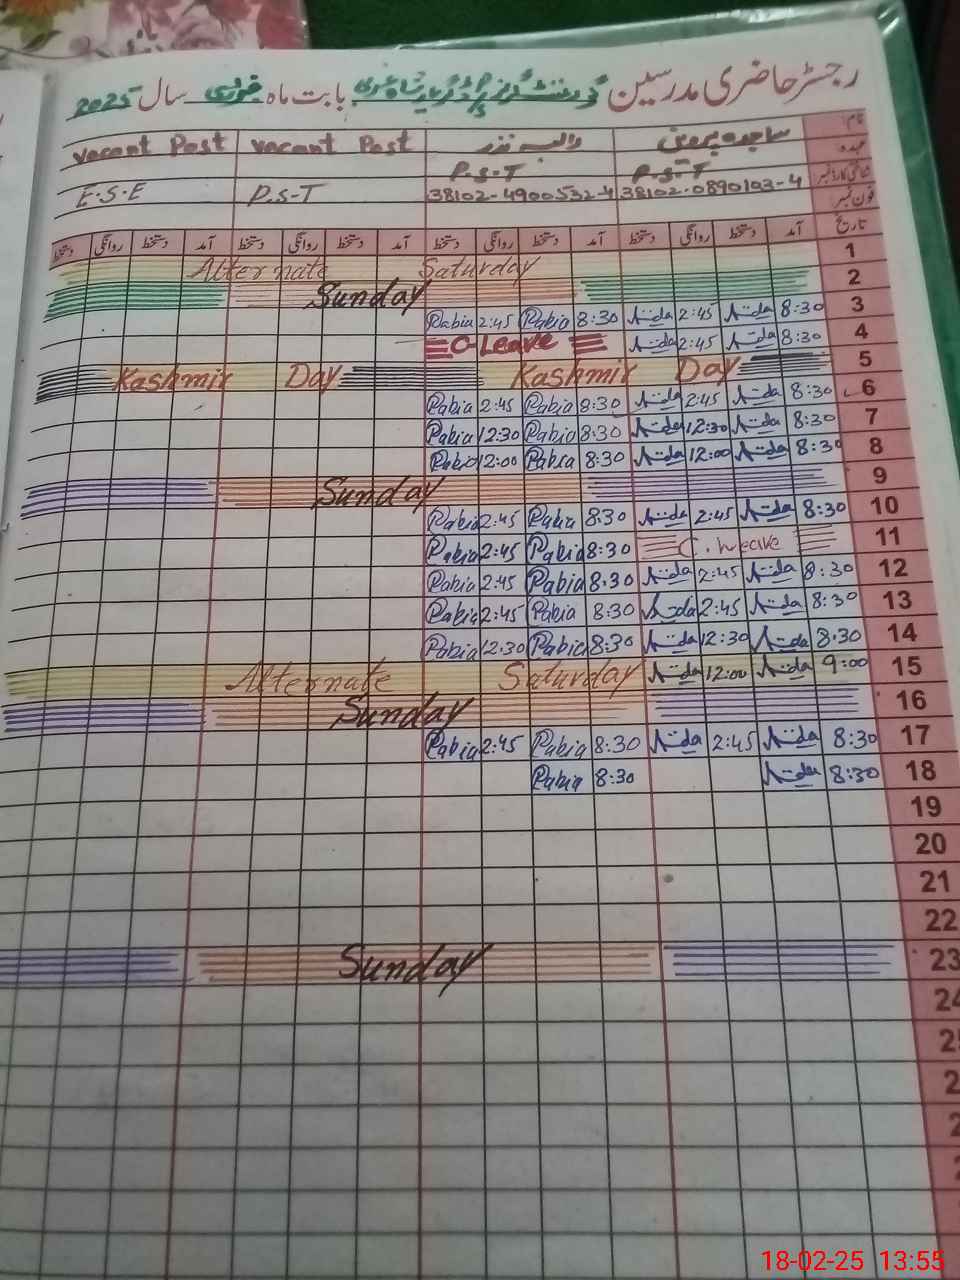 رجسٹر حاضری مدرسین گورنمنٹ گرلز بابت ماہ فروری سال 2025
نام: ساجدہ پروین رابعہ نذر Vacant Post Vacant Post
عہدہ P.S.T P.S.T P.S-T E.S.E
شناختی کارڈ نمبر 38102-0890103-4 38102-4900532-4
فون نمبر:
تاریخ آمد دستخط روانگی دستخط آمد دستخط روانگی دستخط آمد دستخط روانگی دستخط آمد دستخط روانگی دستخط
1 Alternate Saturday
2 Sunday
Rabia 2:45 Rabia 8:30 2:45 8:30 3
C-Leave 2:45 8:30 4
Kashmir Day Kashmir Day 5
Rabia 2:45 Rabia 8:30 2:45 8:30 6
Rabia 12:30 Rabia 8:30 12:30 8:30 7
Rabia 12:00 Rabia 8:30 12:00 8:30 8
Sunday 9
Rabia 2:45 Rabia 8:30 2:45 8:30 10
Rabia 2:45 Rabia 8:30 C. Leave 11
Rabia 2:45 Rabia 8:30 2:45 8:30 12
Rabia 2:45 Rabia 8:30 2:45 8:30 13
Rabia 12:30 Rabia 8:30 12:30 8:30 14
Alternate Saturday 12:00 9:00 15
Sunday 16
Rabia 2:45 Rabia 8:30 2:45 8:30 17
Rabia 8:30 8:30 18
19
20
21
22
Sunday 23
18-02-25 13:55